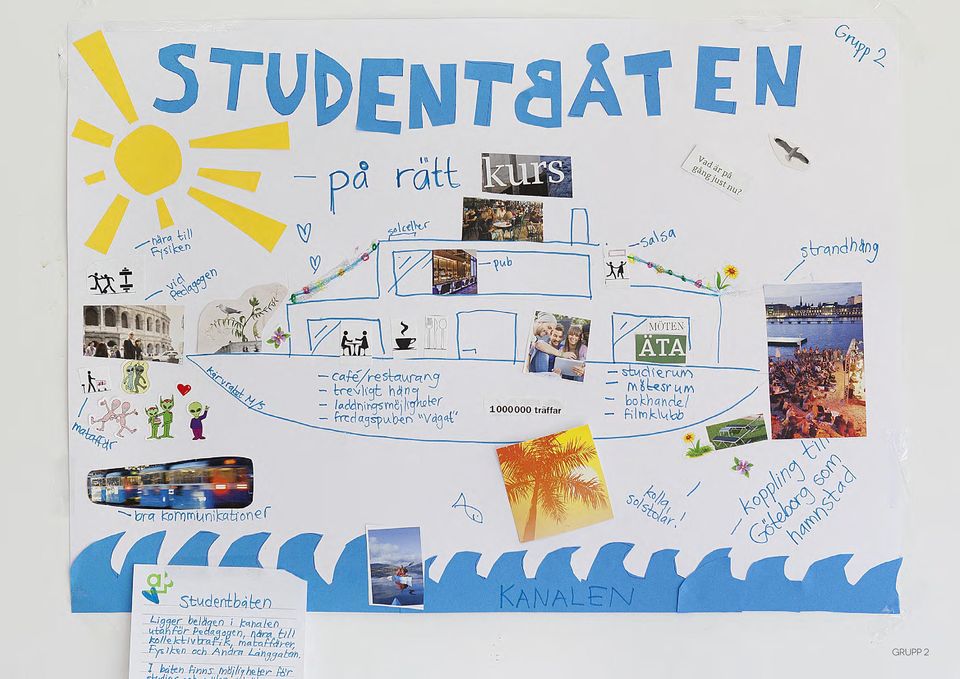 Grupp 2
STUDENTBÅTEN
– på rätt kurs
Vad är på
gång just nu?
solceller
salsa
pub
strandhäng
nära till
Fysiken
vid
pedagogen
mataffär
MÖTEN
ÄTA
– café/restaurang
– trevligt häng
– laddningsmöjligheter
– fredagspuben "Vågat"
– studierum
– mötesrum
– bokhandel
– filmklubb
1000000 träffar
– bra kommunikationer
kolla,
solstolar!
– koppling till
Göteborg som
hamnstad
KANALEN
Studentbåten
Ligger belägen i kanalen
utanför Pedagogen, nära till
kollektivtrafik, mataffärer,
Fysiken och Andra Långgatan.
I båten finns möjligheter för
GRUPP 2